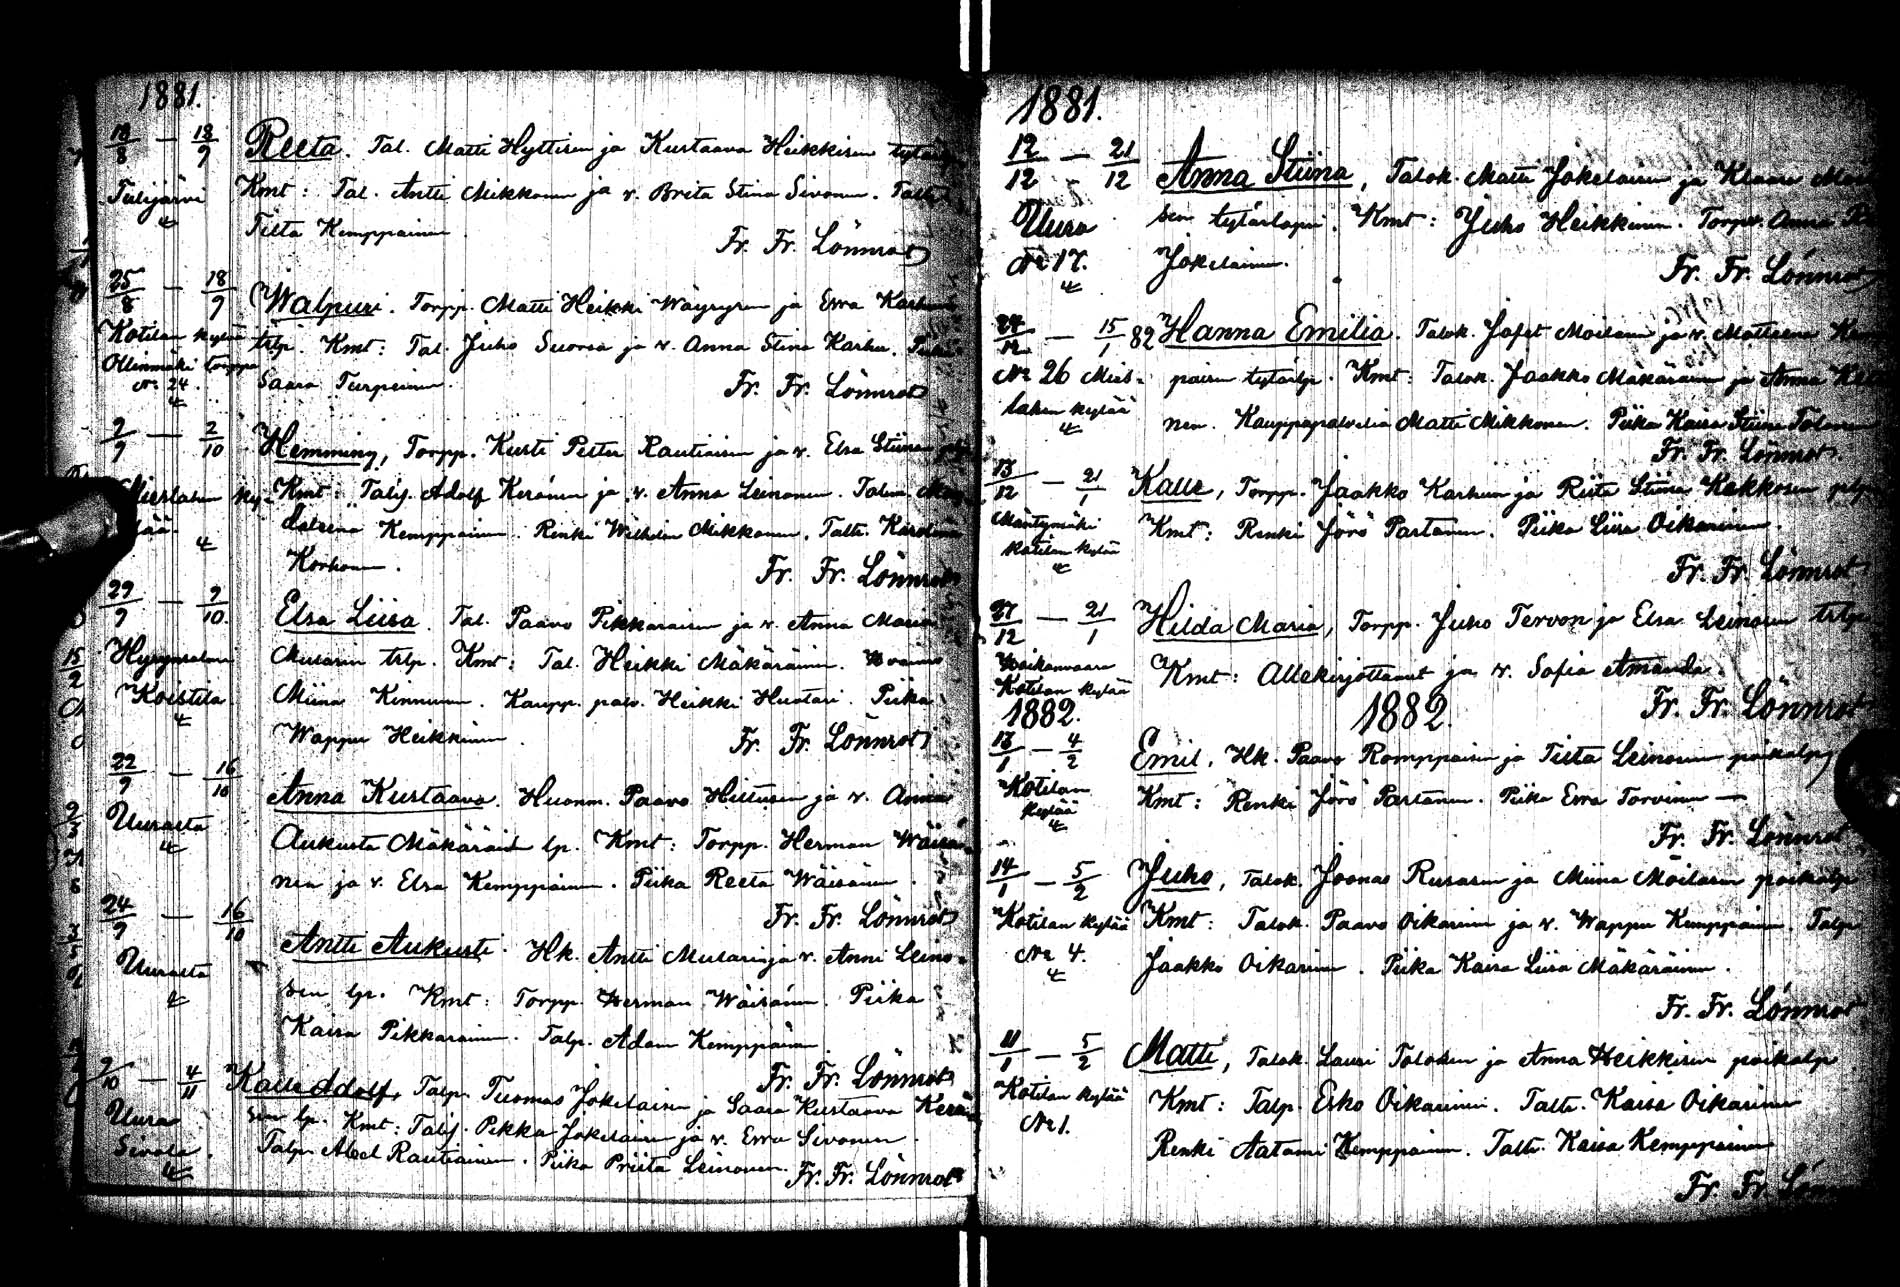 1881.
18/8 — 18/9 Reeta. Tal. Matti Hyttisen ja Kustaava Heikkisen
Tulijärvi Kmt: Tal. Antti Mikkonen ja v. Brita Stina Sivonen.
Tilta Kemppainen
Fr. Fr. Lönnrot
25/8 — 18/9 Walpuri. Torpp. Matti Heikki Wäyrysen ja Ewa
Kotilan kylää trlp. Kmt: Tal. Juho Suorsa ja v. Anna Stina Karhu.
Ollinmäki torppa
No 24. Saara Turpeinen.
Fr. Fr. Lönnrot
2/9 — 2/10 Hemming, Torpp. Kusti Petter Rautiaisen ja v. Elsa Stiina
Kmt: Talij. Adolf Keränen ja v. Anna Leinonen.
Kemppainen. Renki Wilhelm Mikkonen. Taltr. Karolina
Korhonen.
Fr. Fr. Lönnrot
29/9 — 9/10. Elsa Liisa. Tal. Paavo Pikkaraisen ja v. Anna Maria
Hyrynsalmi Mularin trlp. Kmt: Tal. Heikki Mäkäräinen.
Koistila Miina Kinnunen. Kaupp. palv. Heikki Hustari. Piika
Wappu Heikkinen
Fr. Fr. Lönnrot
22/9 — 16/10 Anna Kustaava. Huonm. Paavo Hiltusen ja v. Anna
Uuralta Aukusta Mäkäräis lp. Kmt: Torpp. Herman Wäisä-
nen ja v. Elsa Kemppainen. Piika Reeta Wäisänen.
Fr. Fr. Lönnrot
24/9 — 16/10 Antti Aukusti. Hk. Antti Mularin ja v. Anni Leino-
Uuralta sen lp. Kmt: Torpp. Herman Wäisänen. Piika
Kaisa Pikkarainen. Talp. Adam Kemppainen
Fr. Fr. Lönnrot
9/10 — 4/11 Kalle Adolf, Talp. Tuomas Jokelaisen ja Saara Kustaava Kerä
Uura sen lp. Kmt: Talij. Pekka Jokelainen ja v. Ewa Sivonen.
Sivola. Talp. Abel Rautiainen. Piika Priita Leinonen.
Fr. Fr. Lönnrot
1881.
12/12 — 21/12 Anna Stiina, Talok. Matti Jokelaisen ja Klaara
Uura sen tytärlapsi. Kmt: Juho Heikkinen. Torpp. Anna
No 17. Jokelainen.
Fr. Fr. Lönnrot
24/12 — 15/1 82 Hanna Emilia. Talok. Jafet Moilasen ja v.
No 26 Mies- paisen tytärlp. Kmt: Talok. Jaakko Mäkäräinen ja Anna
lahen kylää nen. Kauppapalvelia Matti Mikkonen. Piika Kaisa Stiina Tolonen
Fr. Fr. Lönnrot
13/12 — 21/1 Kalle, Torpp. Jaakko Karhun ja Riita Stiina Kakkosen
Mäntymäki Kmt: Renki Jörö Partanen. Piika Liisa Oikarinen.
Kotilan kylää
Fr. Fr. Lönnrot
27/12 — 21/1 Hilda Maria, Torpp. Juho Tervon ja Elsa Leinosen trlp.
Kmt: Allekirjottanut ja v. Sofia Amanda.
Kotilan kylää
Fr. Fr. Lönnrot
1882. 1882.
13/1 — 4/2 Emil, Hk. Paavo Romppaisen ja Tilta Leinosen poikalp
Kotilan Kmt: Renki Jörö Partanen. Piika Ewa Torvinen —
kylää
Fr. Fr. Lönnrot
14/1 — 5/2 Juho, Talok. Joonas Rusasen ja Miina Moilasen poikalp
Kotilan kylää Kmt: Talok. Paavo Oikarinen ja v. Wappu Kemppainen. Talp
No 4. Jaakko Oikarinen. Piika Kaisa Liisa Mäkäräinen.
Fr. Fr. Lönnrot
11/1 — 5/2 Matti, Talok. Lauri Tolosen ja Anna Heikkisen poikalp
Kotilan kylää Kmt: Talp. Esko Oikarinen. Taltr. Kaisa Oikarinen
No 1. Renki Aatami Kemppainen. Taltr. Kaisa Kemppainen
Fr. Fr. Lönnrot